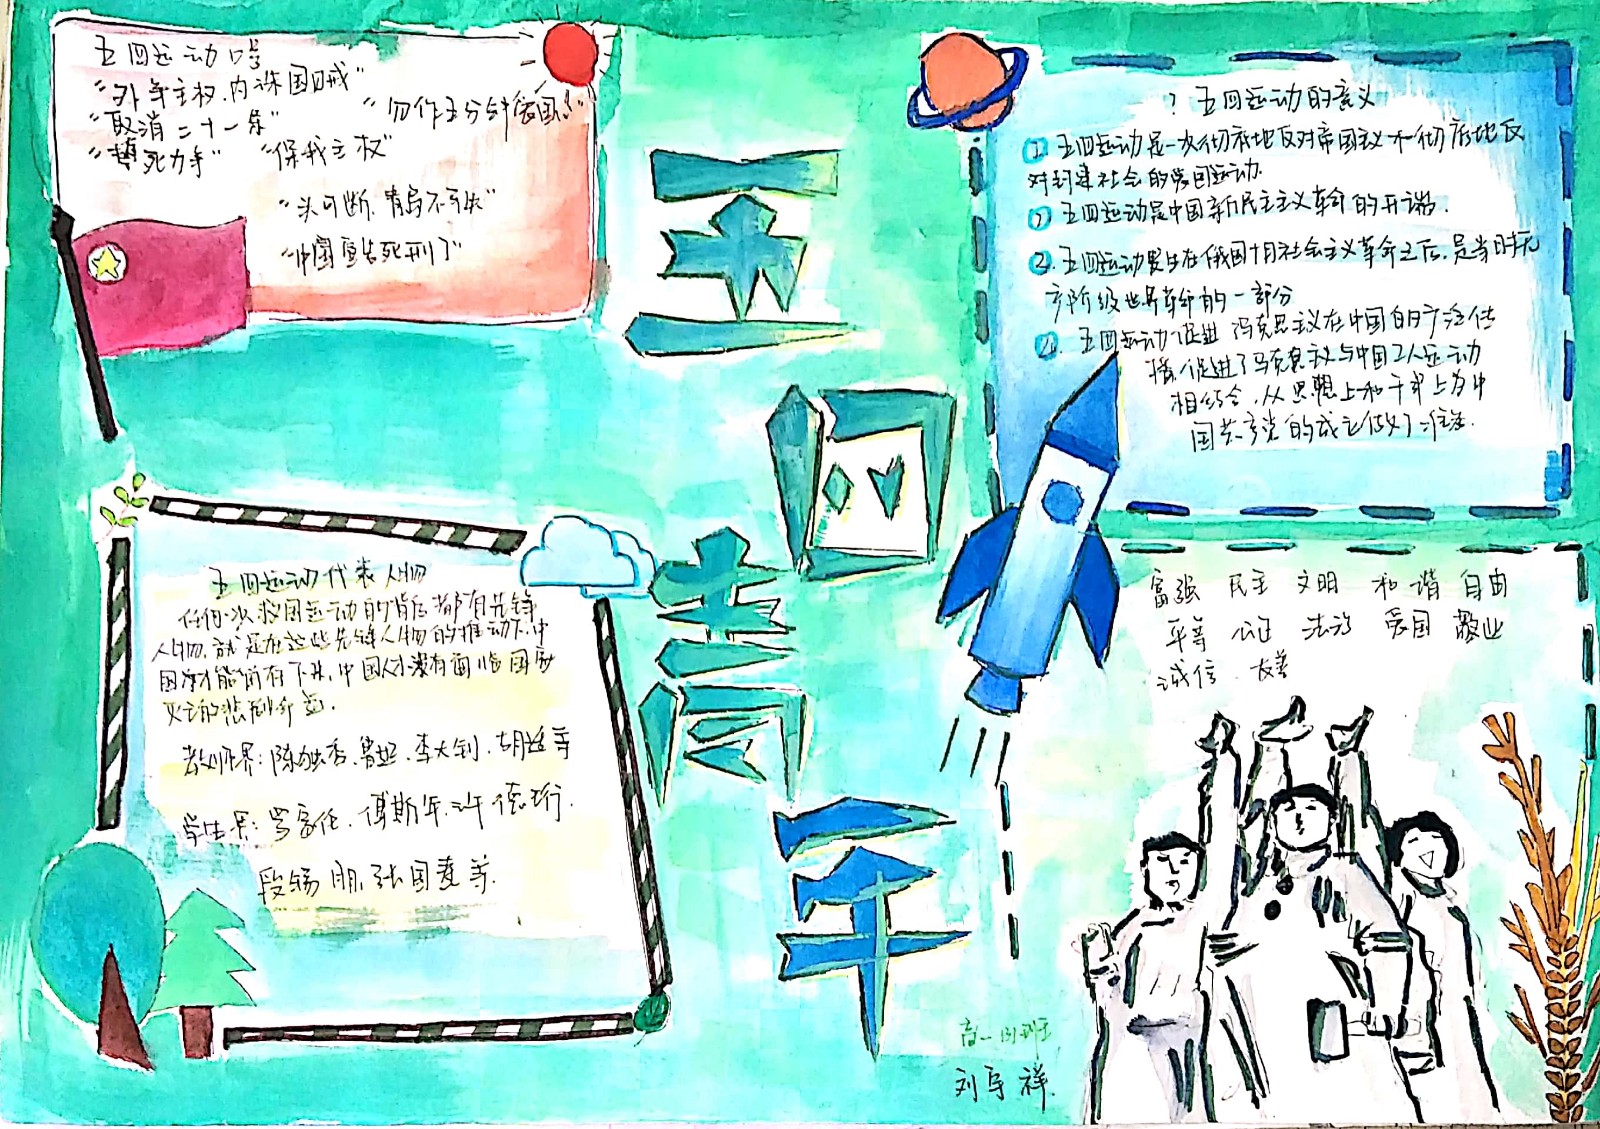 五四运动口号
“外争主权,内诛国贼”
“勿作五分钟爱国!”
“取消二十一条”
“誓死力争” “保我主权”
“头可断,青岛不可失”
“中国宣告死刑了”
五
四
青
年
? 五四运动的意义
① 五四运动是一次彻底地反对帝国主义和彻底地反
对封建社会的爱国运动.
② 五四运动是中国新民主主义革命的开端.
③. 五四运动发生在俄国十月社会主义革命之后,是当时无
产阶级世界革命的一部分
④. 五四运动促进马克思主义在中国的广泛传
播,促进了马克思主义与中国工人运动
相结合,从思想上和干部上为中
国共产党的成立做了准备.
五四运动代表人物
任何一次救国运动的背后都有先锋
人物,就是在这些先锋人物的推动下,中
国才能前
中国人才没有面临国家
灭亡的悲剧命运.
教师界:陈独秀、鲁迅、李大钊、胡适等
学生界:罗家伦、傅斯年、许德珩、
段锡朋、张国焘等.
富强 民主 文明 和谐 自由
平等 公正 法治 爱国 敬业
诚信 友善
高一
班
刘
祥